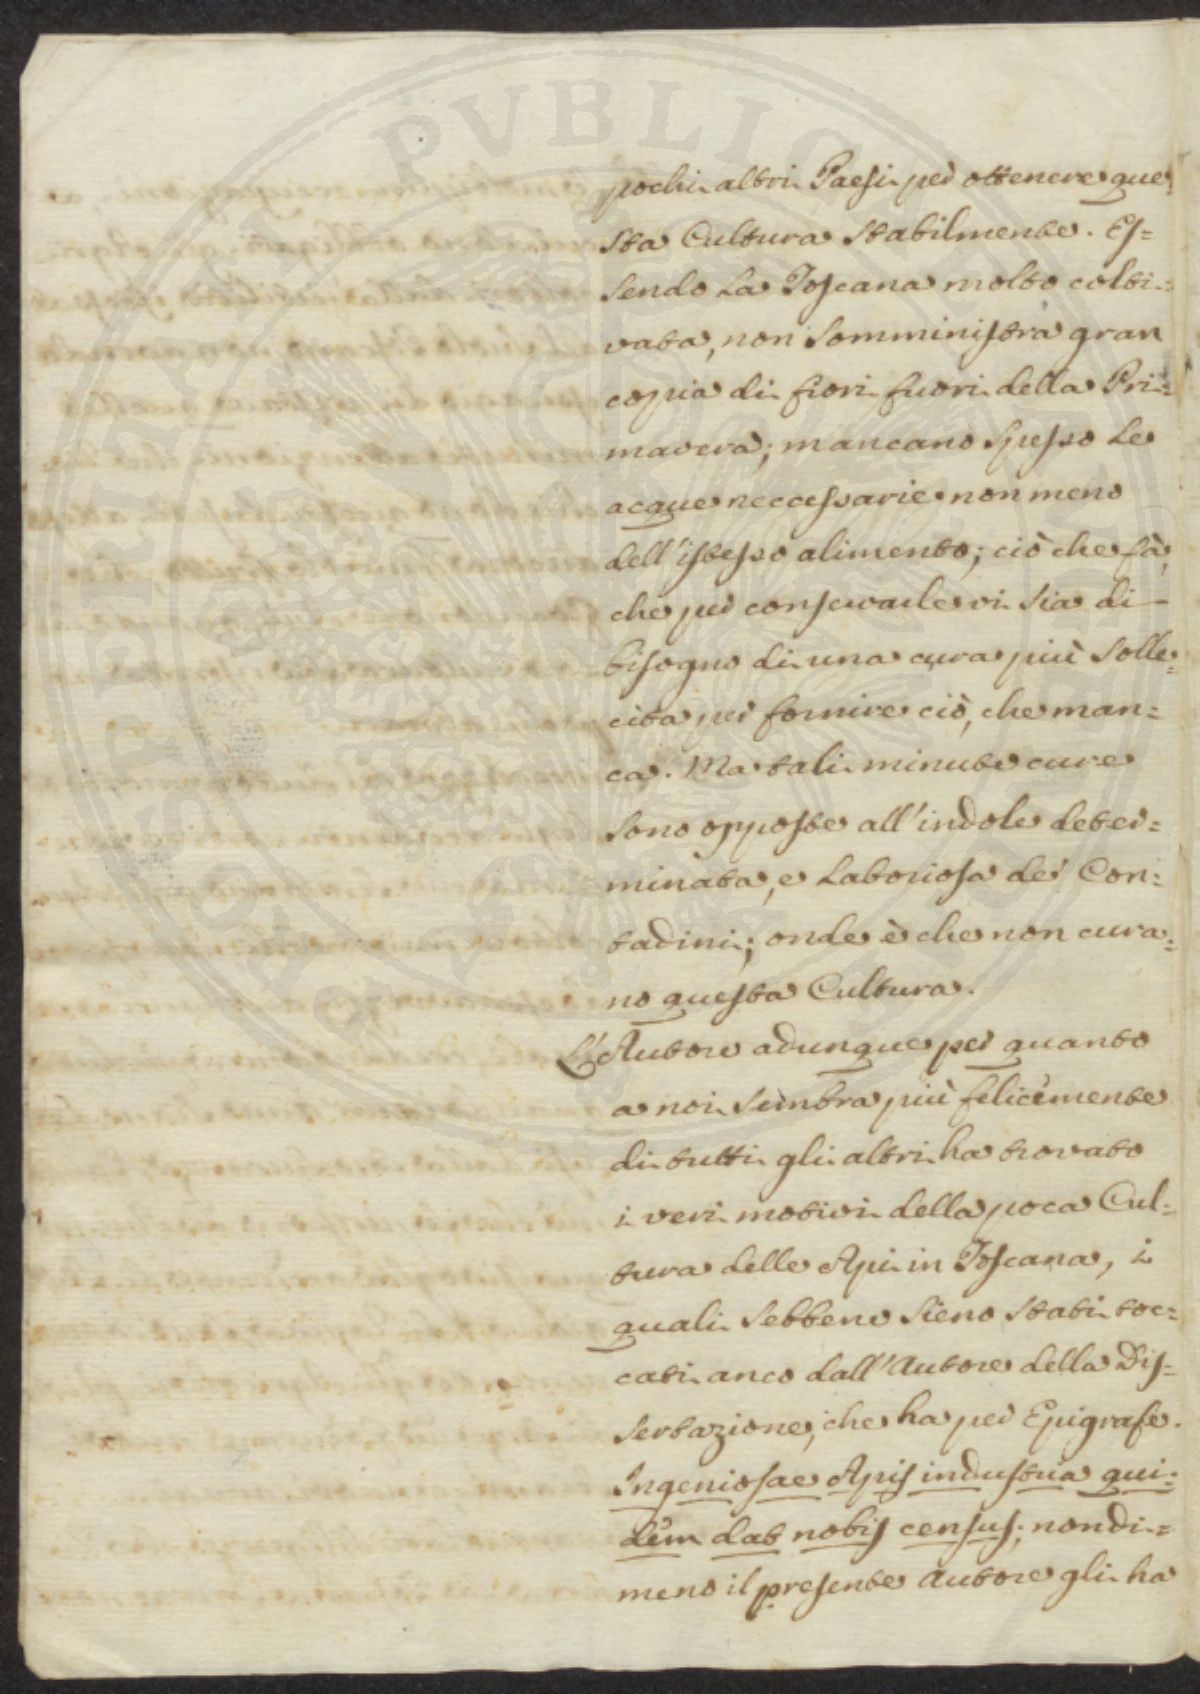 pochi altri Paesi per ottenere que
sta Cultura stabilmente. Es=
sendo la Toscana molto colti=
vata, non somministra gran
copia di fiori fuori della Pri=
mavera; mancano spesso le
acque neccessarie non meno
dell'istesso alimento; ciò che fà,
che per conservarle vi sia di
bisogno di una cura più solle=
cita per fornire ciò, che man=
ca. Ma tali minute cure
sono opposte all'indole deter=
minata, e laboriosa de' Con=
tadini; onde è che non cura=
no questa Cultura.
L'Autore adunque per quanto
a noi sembra più felicemente
di tutti gli altri ha trovato
i veri motivi della poca Cul=
tura delle Api in Toscana, i
quali sebbene sieno stati toc=
cati anco dall'Autore della Dis=
sertazione, che ha per Epigrafe.
Ingeniosae Apis industria qui=
dem dat nobis census; nondi=
meno il presente Autore gli ha